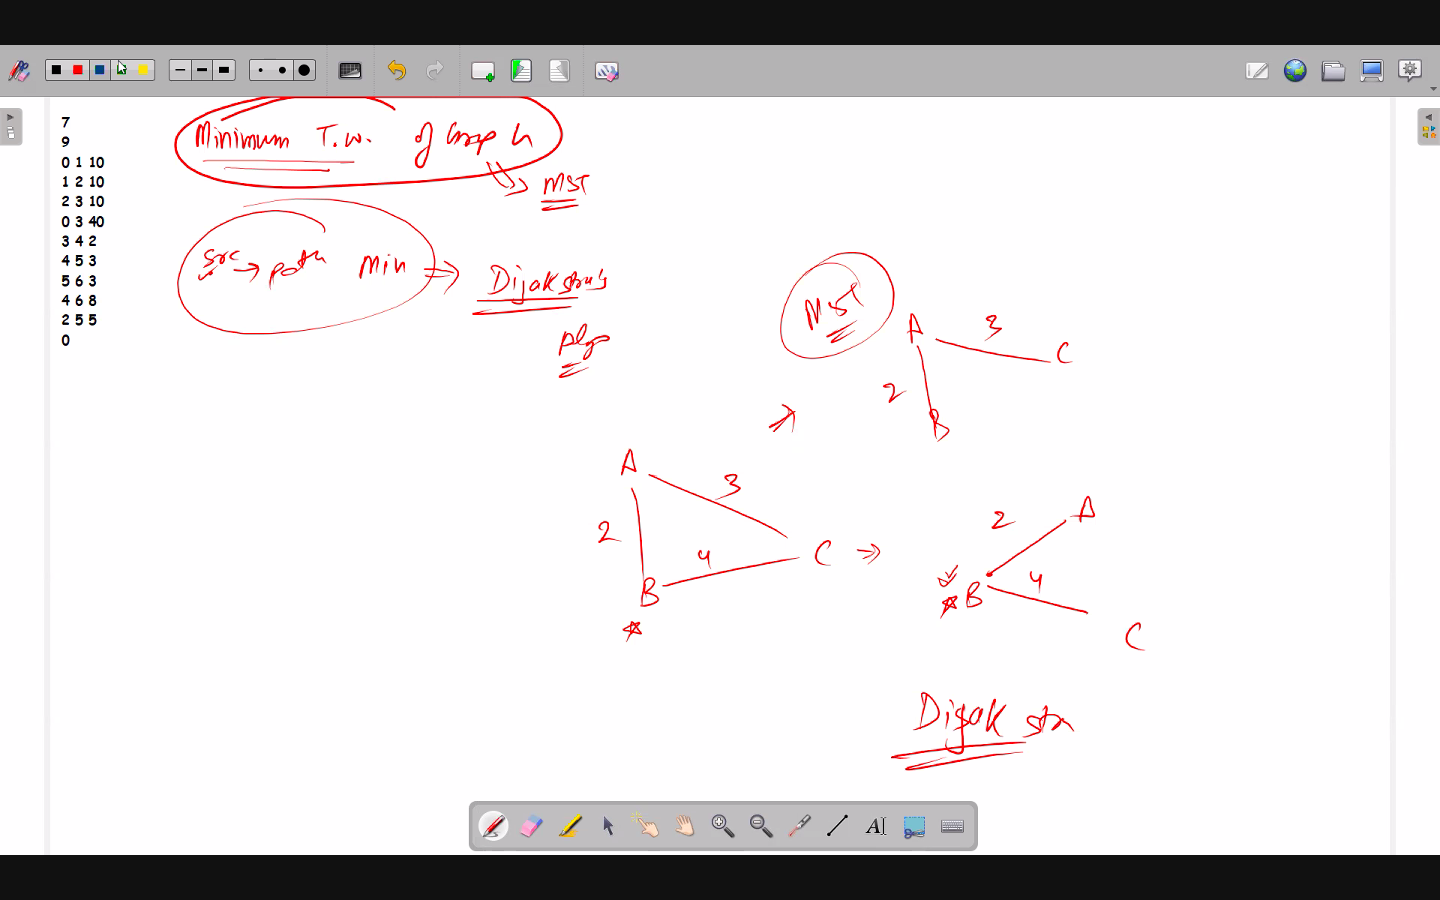 7
9
0 1 10
1 2 10
2 3 10
0 3 40
3 4 2
4 5 3
5 6 3
4 6 8
2 5 5
0
Minimum T.W. of Graph
MST
Src → path Min ⇒ Dijakstra's
Algo
MST
A 3 C
2
B
A
3
2
4
C
B
A
2
4
B
C
Dijak stra